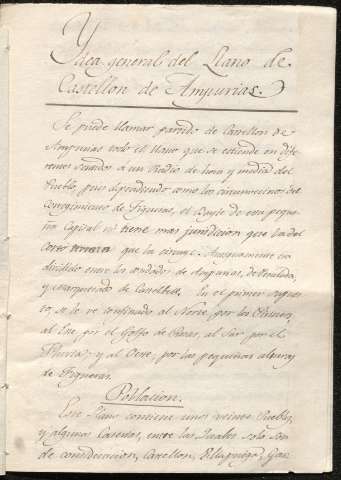 Ydea general del Llano de
Castellon de Ampurias.
Se puede llamar partido de Castellon de
Ampurias todo el llano que se estiende en dife
rentes sentidos a un Radio de hora y media del
Pueblo, pues dependiendo como los circunvecinos del
corregimiento de Figueras, el Bayle de esta peque
ña Capital no tiene mas jurisdicion que la del
corto que la circuye. Antiguamente
dividido entre los condados de Ampurias, de Peralada,
y marquesado de Castellon. En el primer
se ve confinado al Norte, por los
al Este por el Golfo de Rosas, al Sur por el
Fluvia; y al Oeste, por las pequeñas alturas
de Figueras.
Poblacion.
Este Llano contiene unos veinte Pueblos,
y algunos Caserios, entre los quales solo son
de consideracion, Castellon,